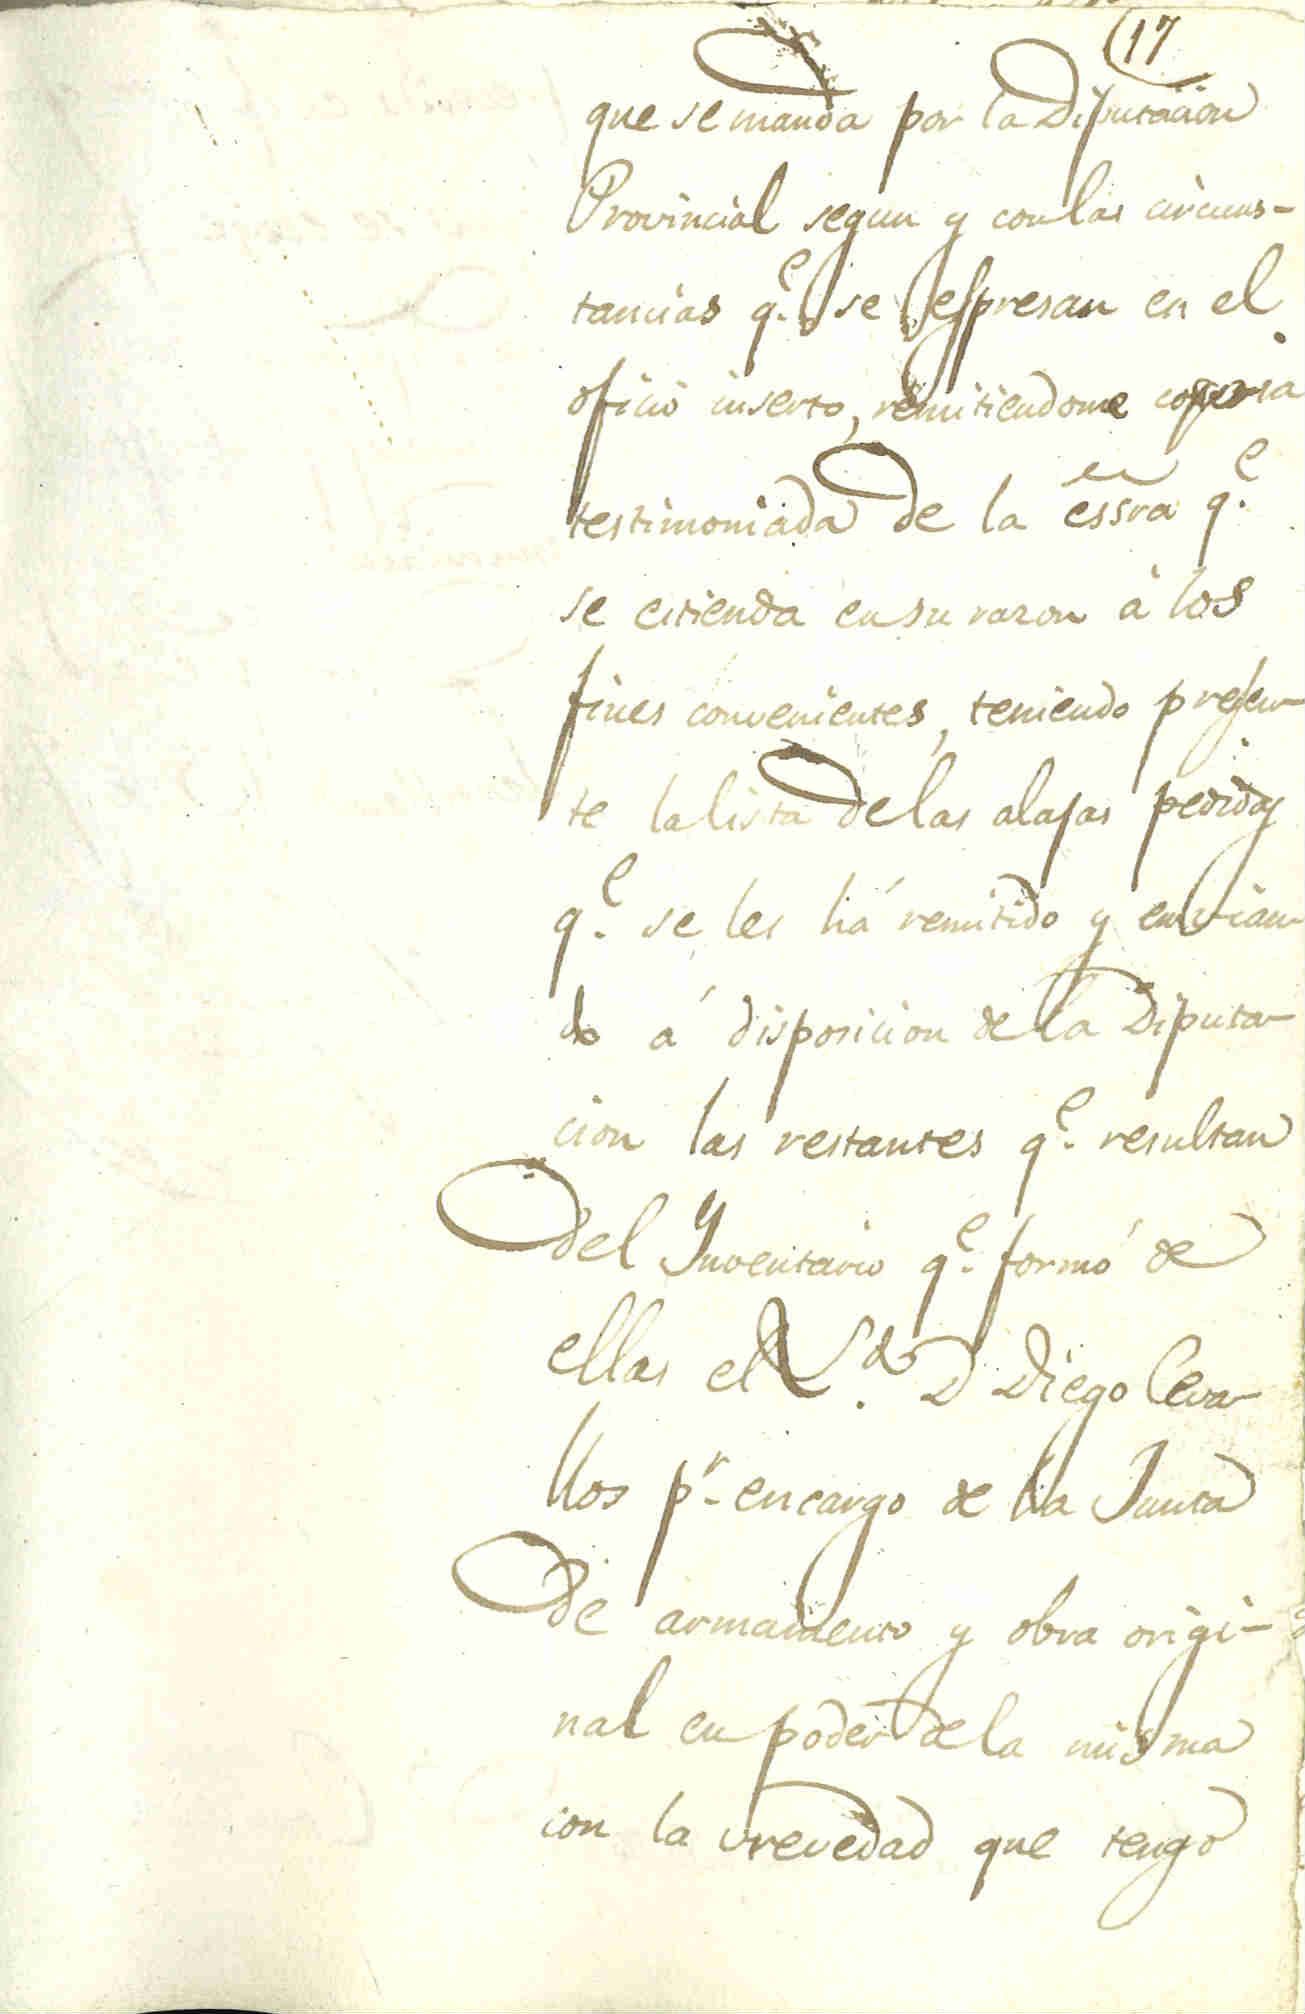 17
que se manda por la Diputacion
Provincial segun y con las circuns-
tancias q.e se espresan en el
oficio inserto, remitiendome copia
testimoniada de la essra q.e
se estienda en su razon á los
fines convenientes, teniendo presen-
te la lista de las alajas pedidas
q.e se les há remitido y envian-
do á disposicion de la Diputa-
cion las restantes q.e resultan
del Inventario q.e formó de
ellas el D Diego Ceva-
llos p.r encargo de la Junta
de armamento y obra origi-
nal en poder de la misma
con la vrevedad que tengo